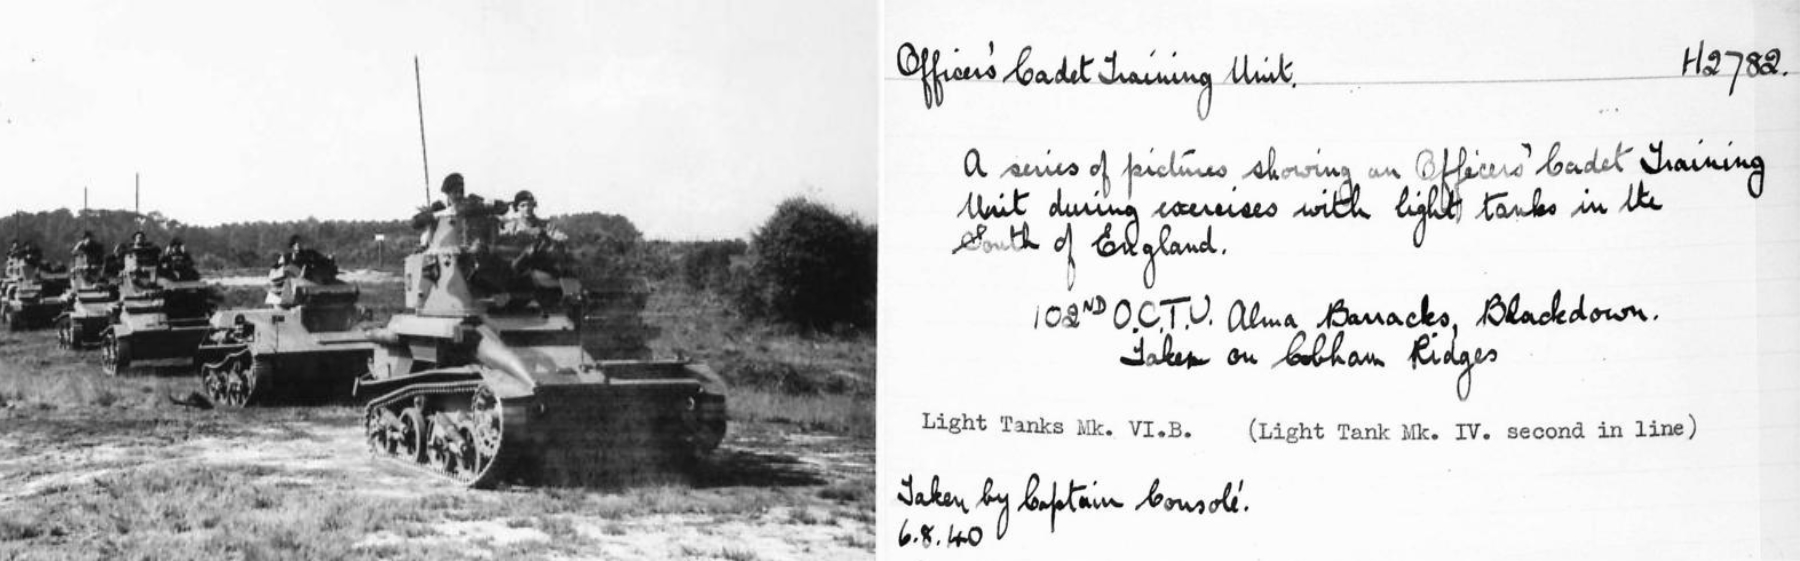 Officers' Cadet Training Unit. H2782.
A series of pictures showing an Officers' Cadet Training
Unit during exercises with light tanks in the
South of England.
102ND O.C.T.U. Alma Barracks, Blackdown.
Taken on Cobham Ridges
Light Tanks Mk. VI.B. (Light Tank Mk. IV. second in line)
Taken by Captain Consolé.
6.8.40